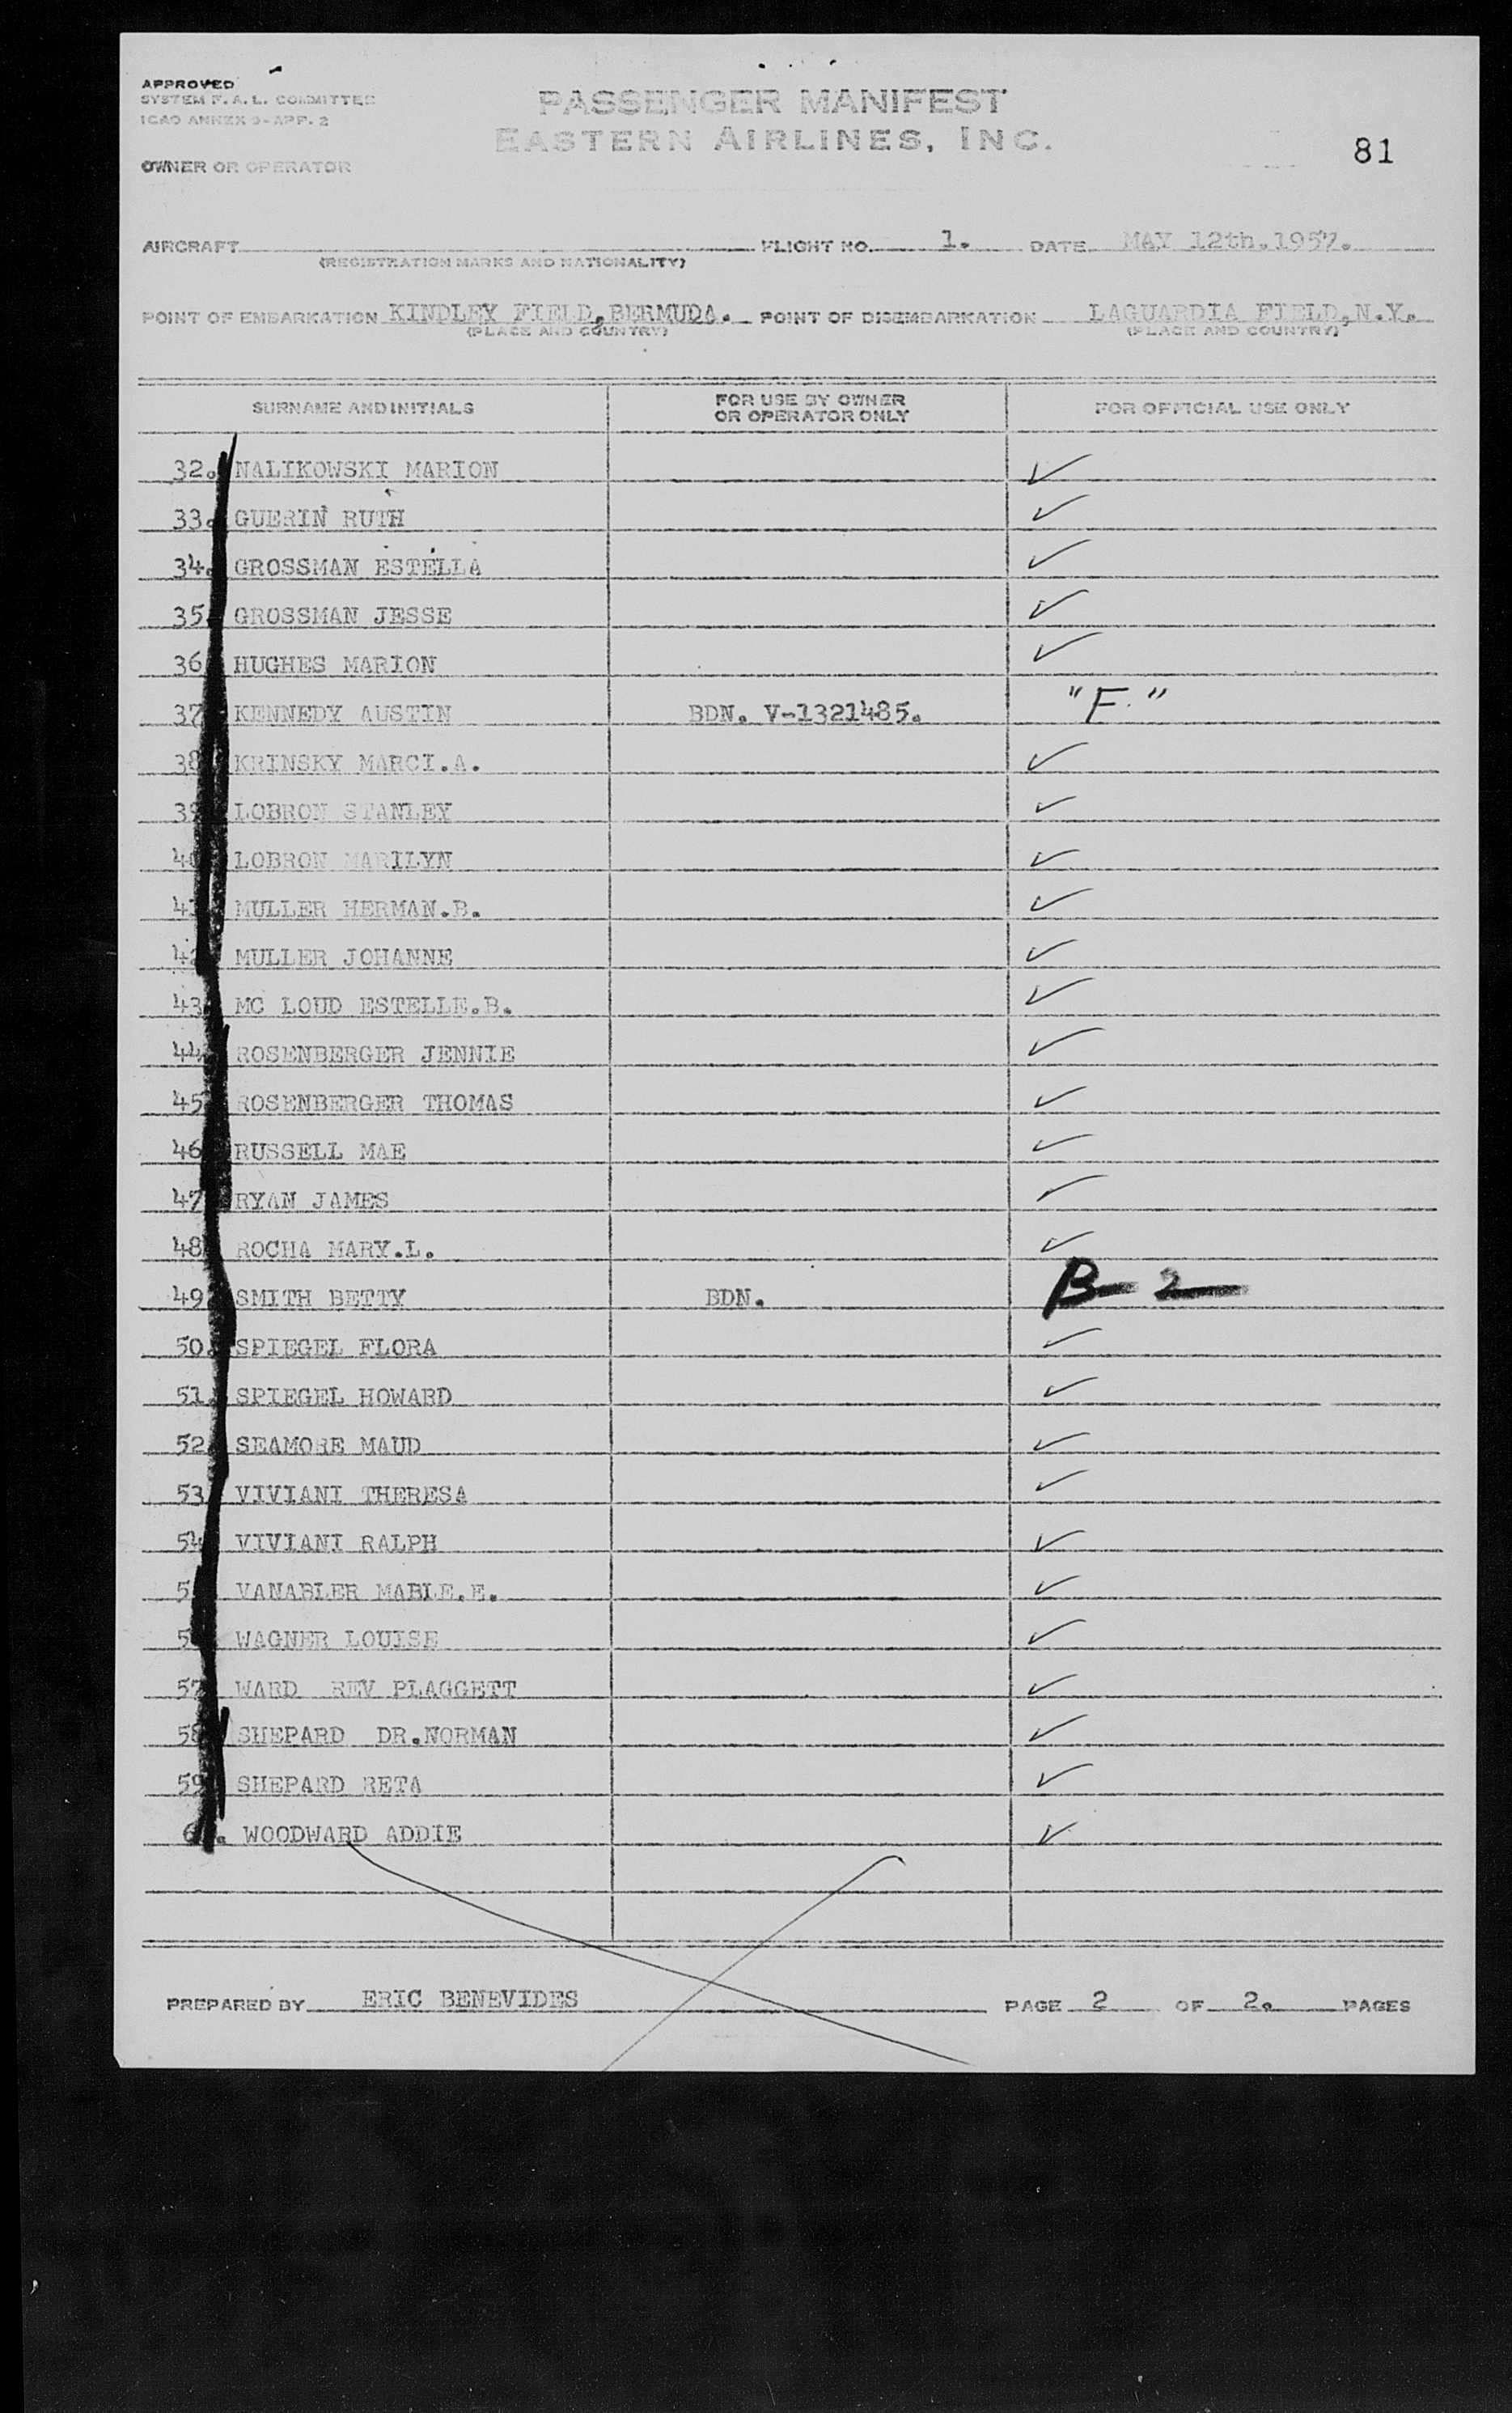 APPROVED
SYSTEM F. A. L. COMMITTEE
ICAO ANNEX 9-APP. 2
PASSENGER MANIFEST
EASTERN AIRLINES, INC.
81
OWNER OR OPERATOR
AIRCRAFT FLIGHT NO. 1. DATE MAY 12th.1957.
(REGISTRATION MARKS AND NATIONALITY)
POINT OF EMBARKATION KINDLEY FIELD, BERMUDA. POINT OF DISEMBARKATION LAGUARDIA FIELD, N.Y.
(PLACE AND COUNTRY) (PLACE AND COUNTRY)
SURNAME AND INITIALS FOR USE BY OWNER OR OPERATOR ONLY FOR OFFICIAL USE ONLY
32. NALIKOWSKI MARION ✓
33. GUERIN RUTH ✓
34. GROSSMAN ESTELLA ✓
35. GROSSMAN JESSE ✓
36 HUGHES MARION ✓
37 KENNEDY AUSTIN BDN. V-1321485. "F."
38 KRINSKY MARCI.A. ✓
39 LOBRON STANLEY ✓
40 LOBRON MARILYN ✓
41 MULLER HERMAN.B. ✓
42 MULLER JOHANNE ✓
43 MC LOUD ESTELLE.B. ✓
44 ROSENBERGER JENNIE ✓
45 ROSENBERGER THOMAS ✓
46 RUSSELL MAE ✓
47 RYAN JAMES ✓
48 ROCHA MARY.L. ✓
49 SMITH BETTY BDN. B-2
50. SPIEGEL FLORA ✓
51. SPIEGEL HOWARD ✓
52 SEAMORE MAUD ✓
53 VIVIANI THERESA ✓
54 VIVIANI RALPH ✓
5 VANABLER MABLE.E. ✓
5 WAGNER LOUISE ✓
57 WARD REV PLAGGETT ✓
58 SHEPARD DR.NORMAN ✓
59 SHEPARD RETA ✓
6 . WOODWARD ADDIE ✓
PREPARED BY ERIC BENEVIDES PAGE 2 OF 2. PAGES